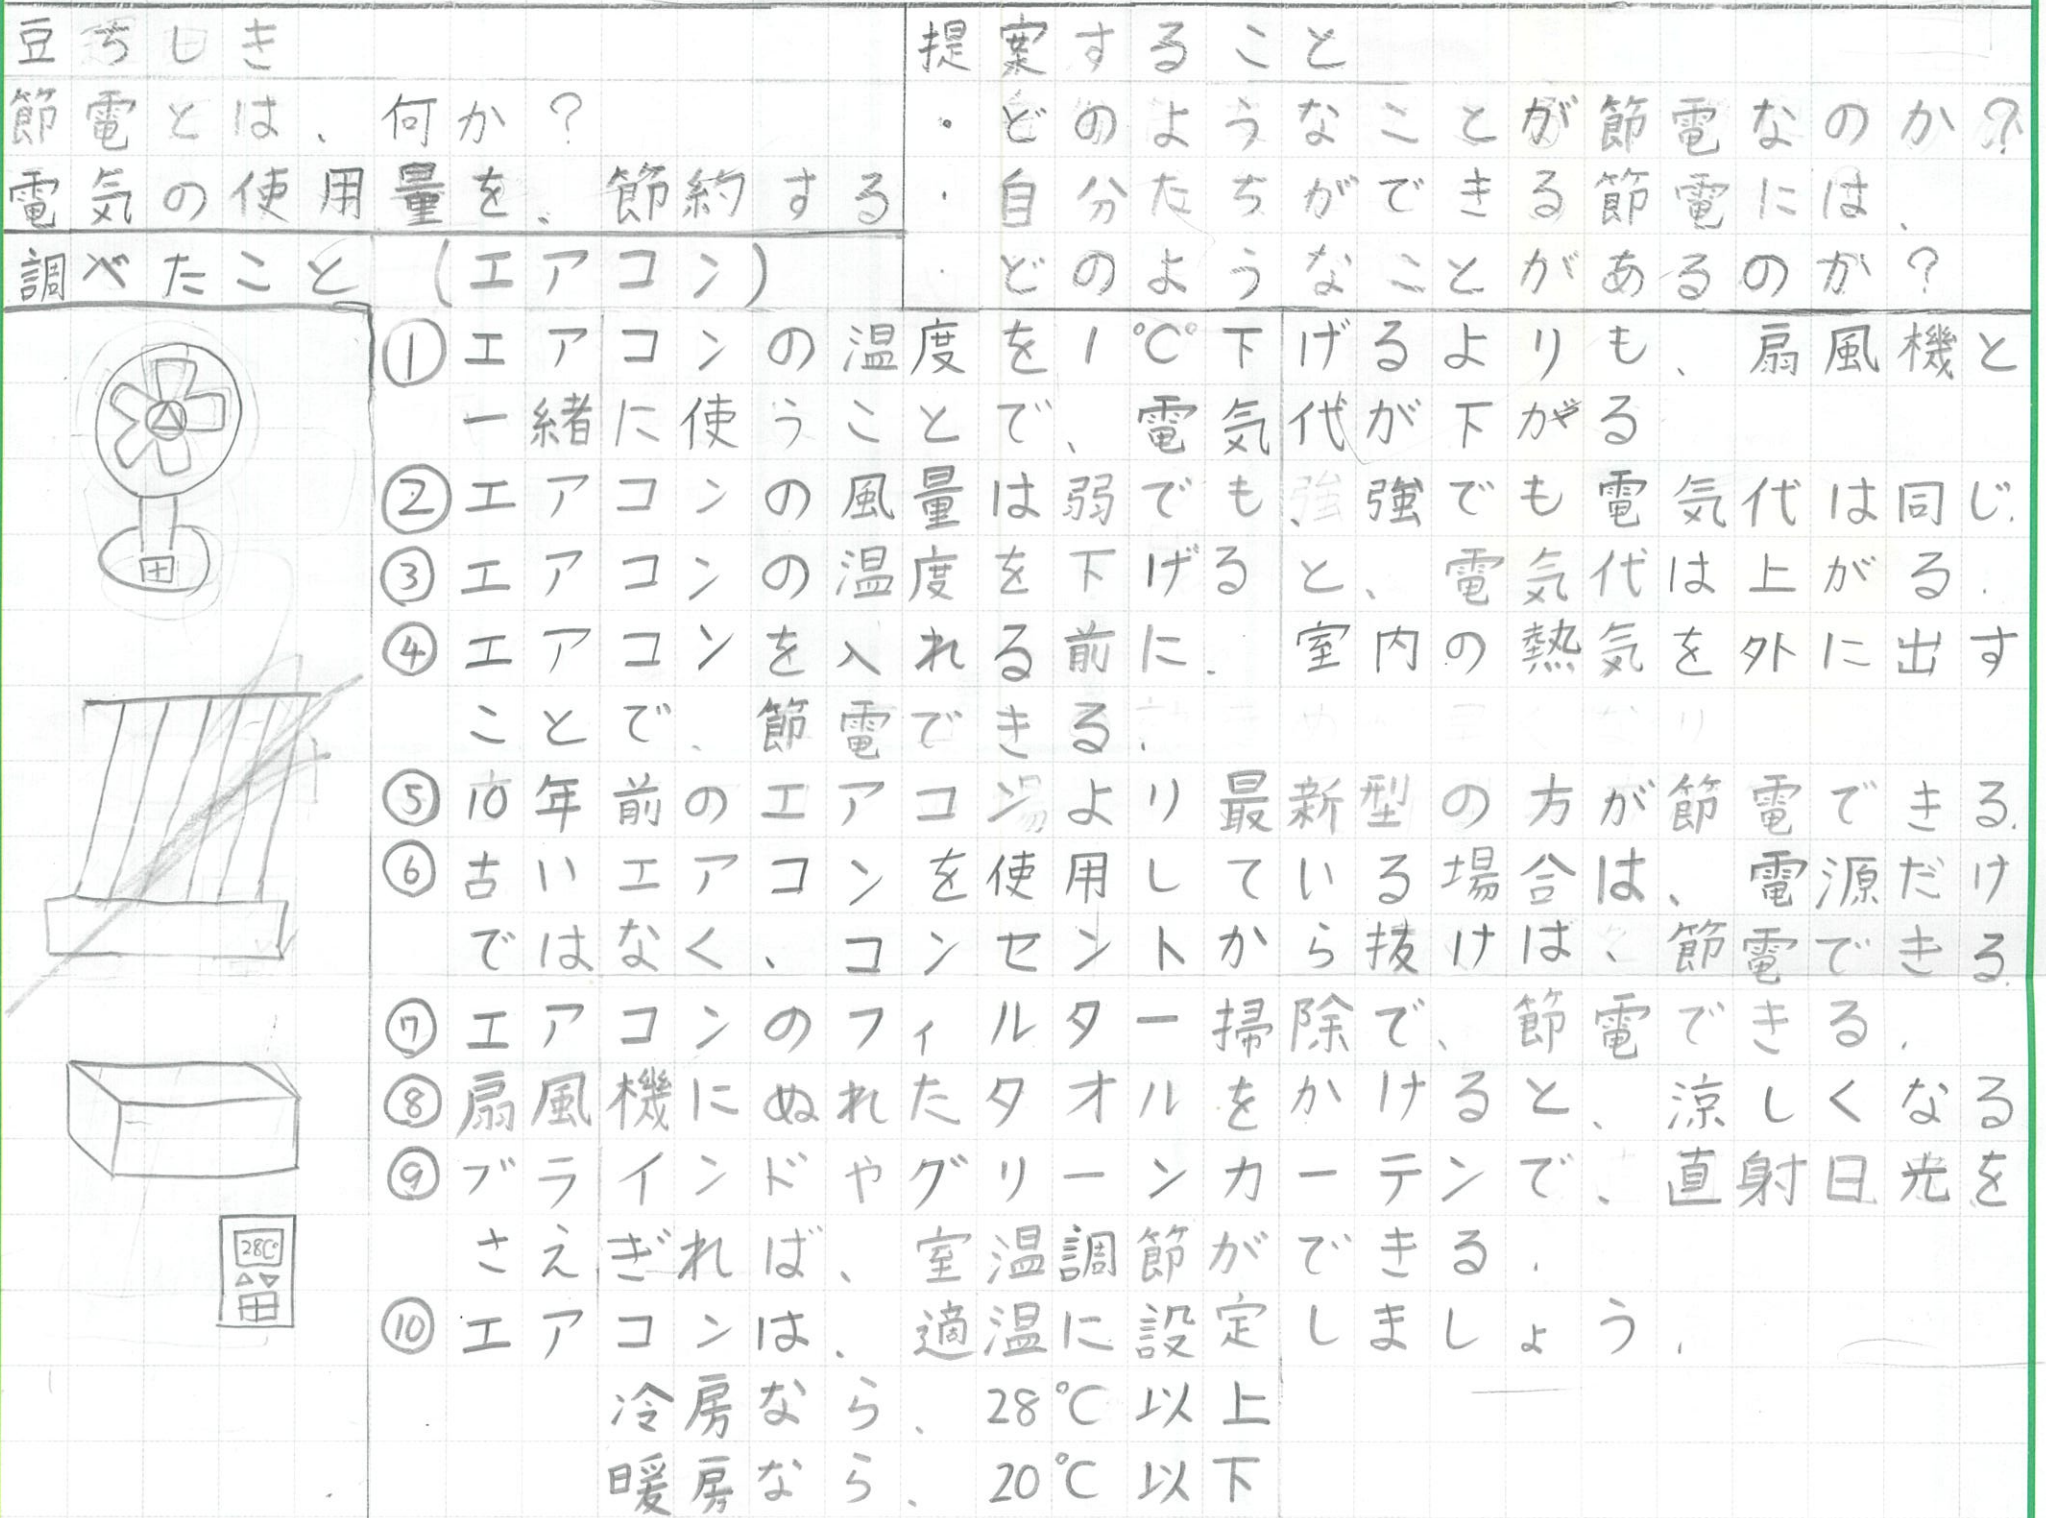 豆ちしき
節電とは、何か?
電気の使用量を、節約する
提案すること
・どのようなことが節電なのか?
・自分たちができる節電には、
どのようなことがあるのか?
調べたこと (エアコン)
①エアコンの温度を1℃下げるよりも、扇風機と
一緒に使うことで、電気代が下がる
②エアコンの風量は弱でも、強でも電気代は同じ.
③エアコンの温度を下げると、電気代は上がる.
④エアコンを入れる前に、室内の熱気を外に出す
ことで、節電できる.
⑤10年前のエアコンより最新型の方が節電できる.
⑥古いエアコンを使用している場合は、電源だけ
ではなく、コンセントから抜けば、節電できる.
⑦エアコンのフィルター掃除で、節電できる.
⑧扇風機にぬれたタオルをかけると、涼しくなる
⑨ブラインドやグリーンカーテンで、直射日光を
さえぎれば、室温調節ができる.
28℃
⑩エアコンは、適温に設定しましょう.
冷房なら、28℃以上
暖房なら、20℃以下